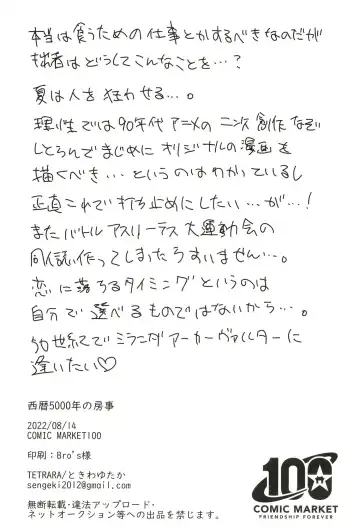 本当は食うための仕事とかするべきなのだが
拙者はどうしてこんなことを…?
夏は人を狂わせる…。
理性では90年代アニメの二次創作なぞ
しとらんでまじめにオリジナルの漫画を
描くべき…というのはわかっているし
正直これで打ち止めにしたい…が…!
またバトルアスリーテス大運動会の
同人誌作ってしまったらすいません…。
恋に落ちるタイミングというのは
自分で選べるものではないから…。
50世紀でミランダ アーカーヴァルターに
逢いたい♡
西暦5000年の房事
2022/08/14
COMIC MARKET100
印刷：Bro's様
TETRARA/ときわゆたか
sengeki2012@gmail.com
無断転載・違法アップロード・
ネットオークション等への出品を禁じます。
100
COMIC MARKET
FRIENDSHIP FOREVER